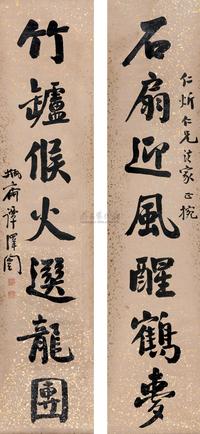 石扇迎風醒鶴夢
仁炘仁兄法家正捥
竹鑪候火選龍團
瓶齋譚澤闓